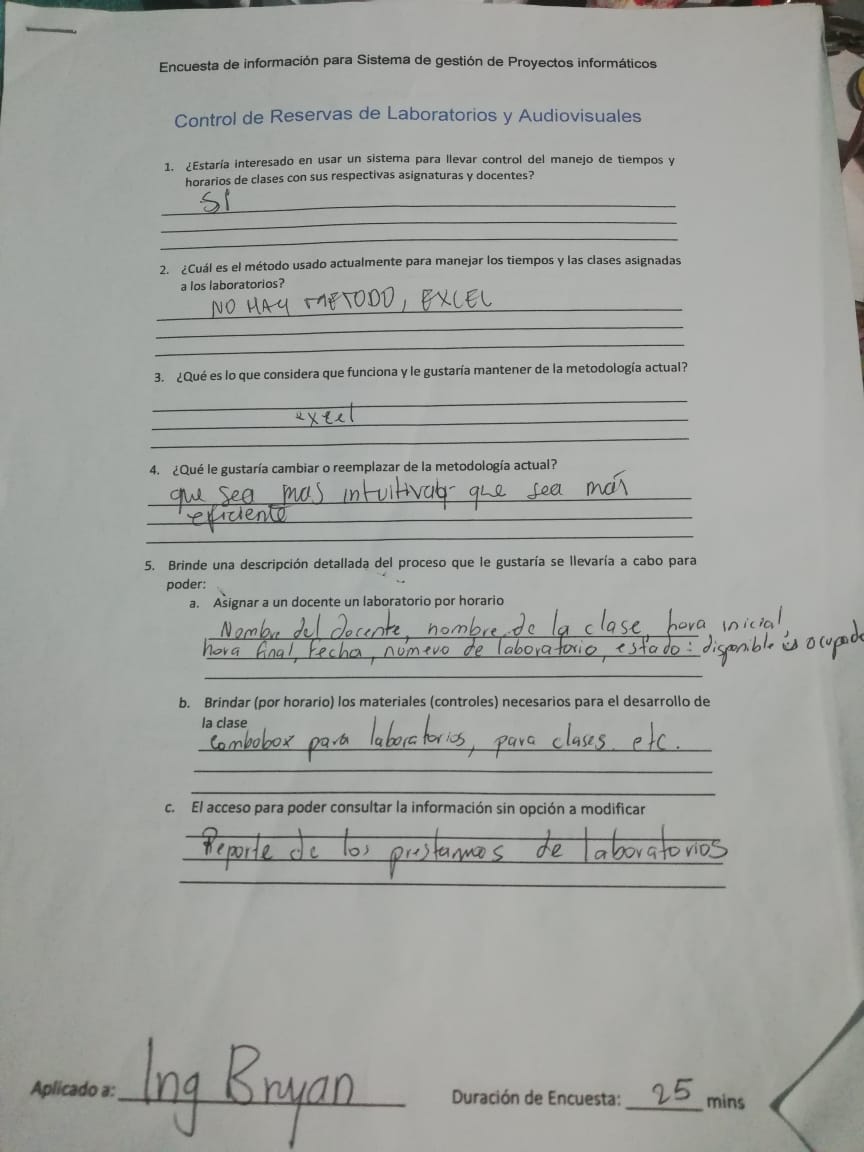 Encuesta de información para Sistema de gestión de Proyectos informáticos
Control de Reservas de Laboratorios y Audiovisuales
1. ¿Estaría interesado en usar un sistema para llevar control del manejo de tiempos y
horarios de clases con sus respectivas asignaturas y docentes?
SI
2. ¿Cuál es el método usado actualmente para manejar los tiempos y las clases asignadas
a los laboratorios?
NO HAY METODO, EXCEL
3. ¿Qué es lo que considera que funciona y le gustaría mantener de la metodología actual?
excel
4. ¿Qué le gustaría cambiar o reemplazar de la metodología actual?
que sea mas intuitivo y que sea más
eficiente
5. Brinde una descripción detallada del proceso que le gustaría se llevaría a cabo para
poder:
a. Asignar a un docente un laboratorio por horario
Nombre del docente, nombre de la clase, hora inicial,
hora final, fecha, número de laboratorio, estado: disponible ocupado
b. Brindar (por horario) los materiales (controles) necesarios para el desarrollo de
la clase
Combobox para laboratorios, para clases. etc.
c. El acceso para poder consultar la información sin opción a modificar
Reporte de los prestamos de laboratorios
Aplicado a: Ing Bryan Duración de Encuesta: 25 mins